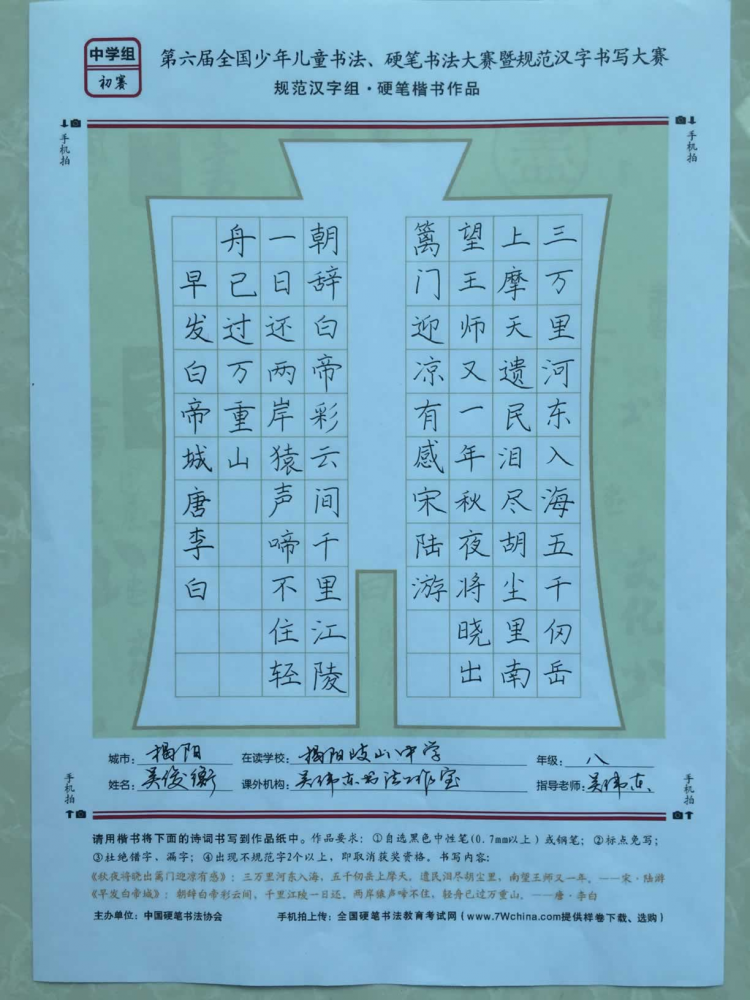 中学组
初赛
第六届全国少年儿童书法、硬笔书法大赛暨规范汉字书写大赛
规范汉字组·硬笔楷书作品
手机拍
手机拍
三万里河东入海五千仞岳
上摩天遗民泪尽胡尘里南
望王师又一年秋夜将晓出
篱门迎凉有感宋陆游
朝辞白帝彩云间千里江陵
一日还两岸猿声啼不住轻
舟已过万重山
早发白帝城唐李白
城市：揭阳 在读学校：揭阳岐山中学 年级：八
姓名：吴俊衡 课外机构：吴伟东书法工作室 指导老师：吴伟东
手机拍
手机拍
请用楷书将下面的诗词书写到作品纸中。作品要求：①自选黑色中性笔(0.7mm以上）或钢笔；②标点免写；
③杜绝错字、漏字；④出现不规范字2个以上，即取消获奖资格。书写内容：
《秋夜将晓出篱门迎凉有感》：三万里河东入海，五千仞岳上摩天，遗民泪尽胡尘里，南望王师又一年。——宋·陆游
《早发白帝城》：朝辞白帝彩云间，千里江陵一日还。两岸猿声啼不住，轻舟已过万重山。——唐·李白
主办单位：中国硬笔书法协会 手机拍上传：全国硬笔书法教育考试网（www.7Wchina.com提供样卷下载、选购）